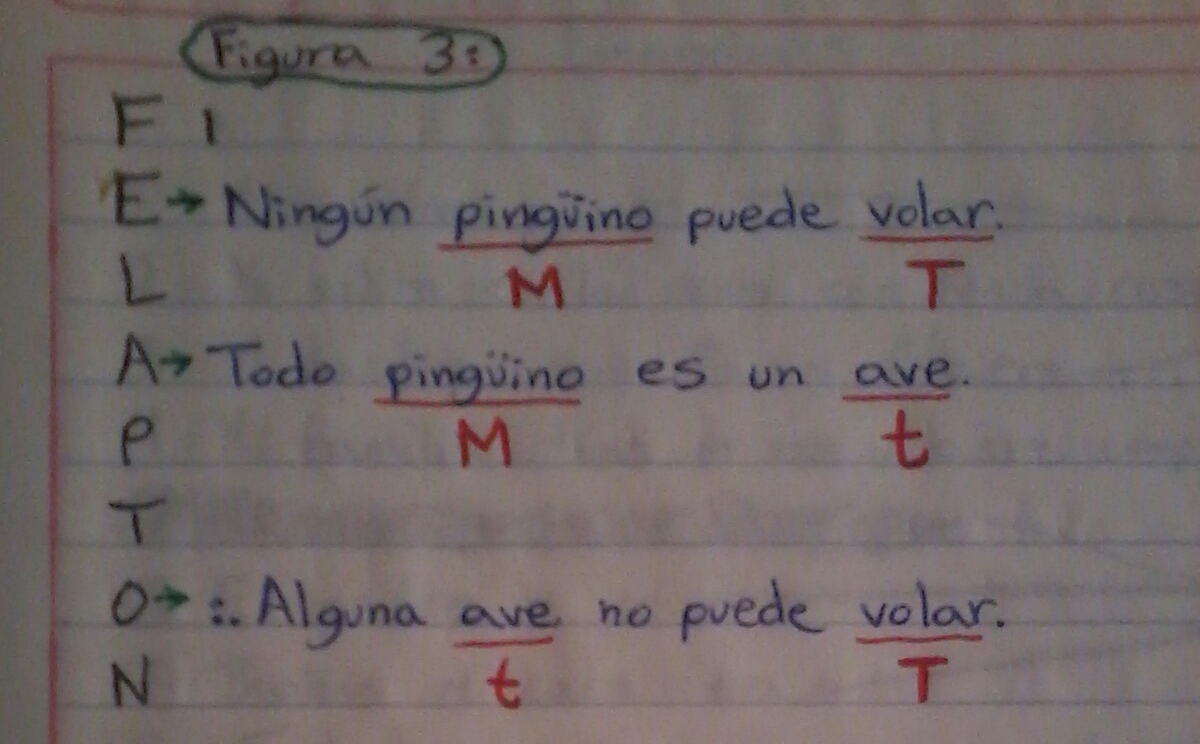 Figura 3:
F 1
E→ Ningún pingüino puede volar.
L M T
A→ Todo pingüino es un ave.
P M t
T
O→ :. Alguna ave no puede volar.
N t T